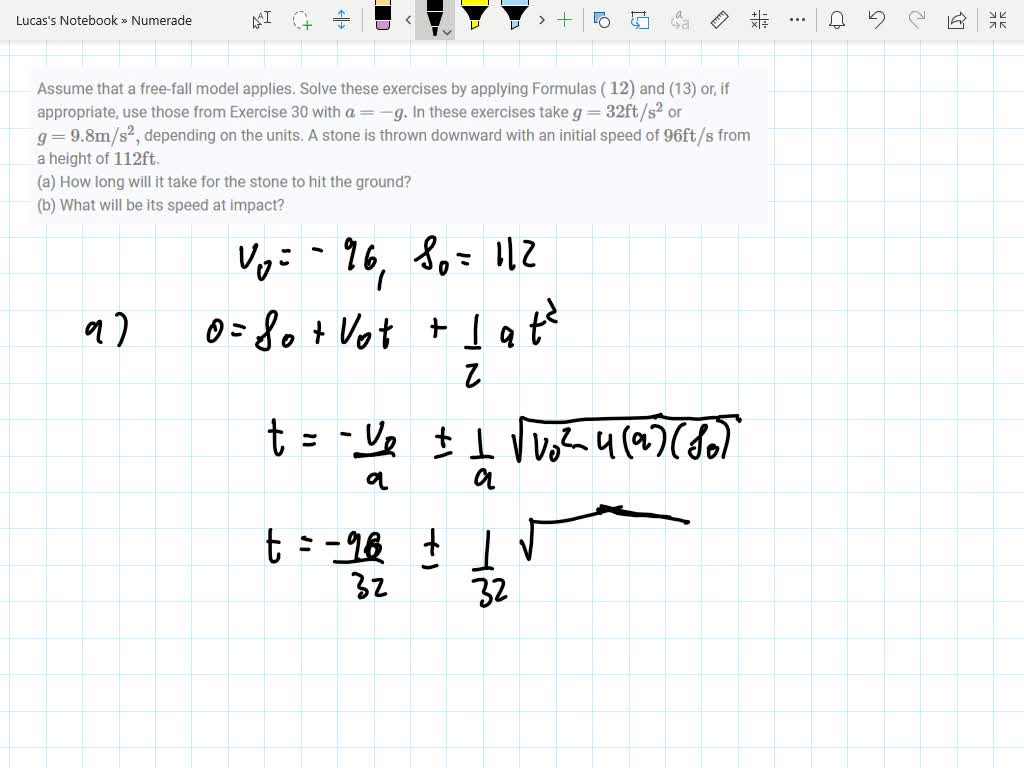 Lucas's Notebook » Numerade
Assume that a free-fall model applies. Solve these exercises by applying Formulas ( 12) and (13) or, if
appropriate, use those from Exercise 30 with a = −g. In these exercises take g = 32ft/s² or
g = 9.8m/s², depending on the units. A stone is thrown downward with an initial speed of 96ft/s from
a height of 112ft.
(a) How long will it take for the stone to hit the ground?
(b) What will be its speed at impact?
v₀ = - 96, s₀ = 112
a) 0 = s₀ + v₀t + 1/2 a t²
t = -v₀/a ± 1/a √(v₀² - 4(a)(s₀))
t = -96/32 ± 1/32 √